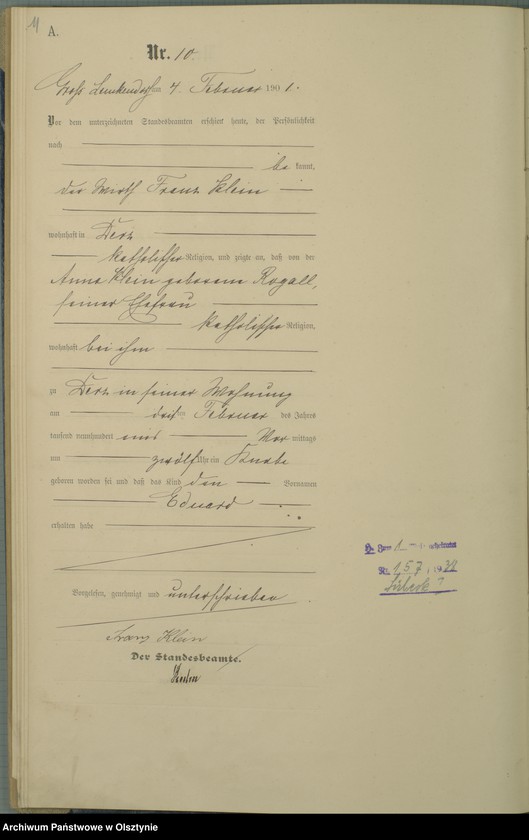 11
A.
Nr. 10.
Gross Lemkendorf am 4. Februar 1901.
Vor dem unterzeichneten Standesbeamten erschien heute, der Persönlichkeit
nach
be kannt,
der Wirth Franz Klein
wohnhaft in Derz
katholischer Religion, und zeigte an, daß von der
Anna Klein geborene Rogall,
seiner Ehefrau
katholischer Religion,
wohnhaft bei ihm
zu Derz in seiner Wohnung
am drei ten Februar des Jahres
tausend neunhundert eins Vor mittags
um zwölf Uhr ein Knabe
geboren worden sei und daß das Kind den Vornamen
Eduard
erhalten habe
Vorgelesen, genehmigt und unterschrieben
Franz Klein
Der Standesbeamte.
Nr. 157, 1932
Lübeck
Archiwum Państwowe w Olsztynie